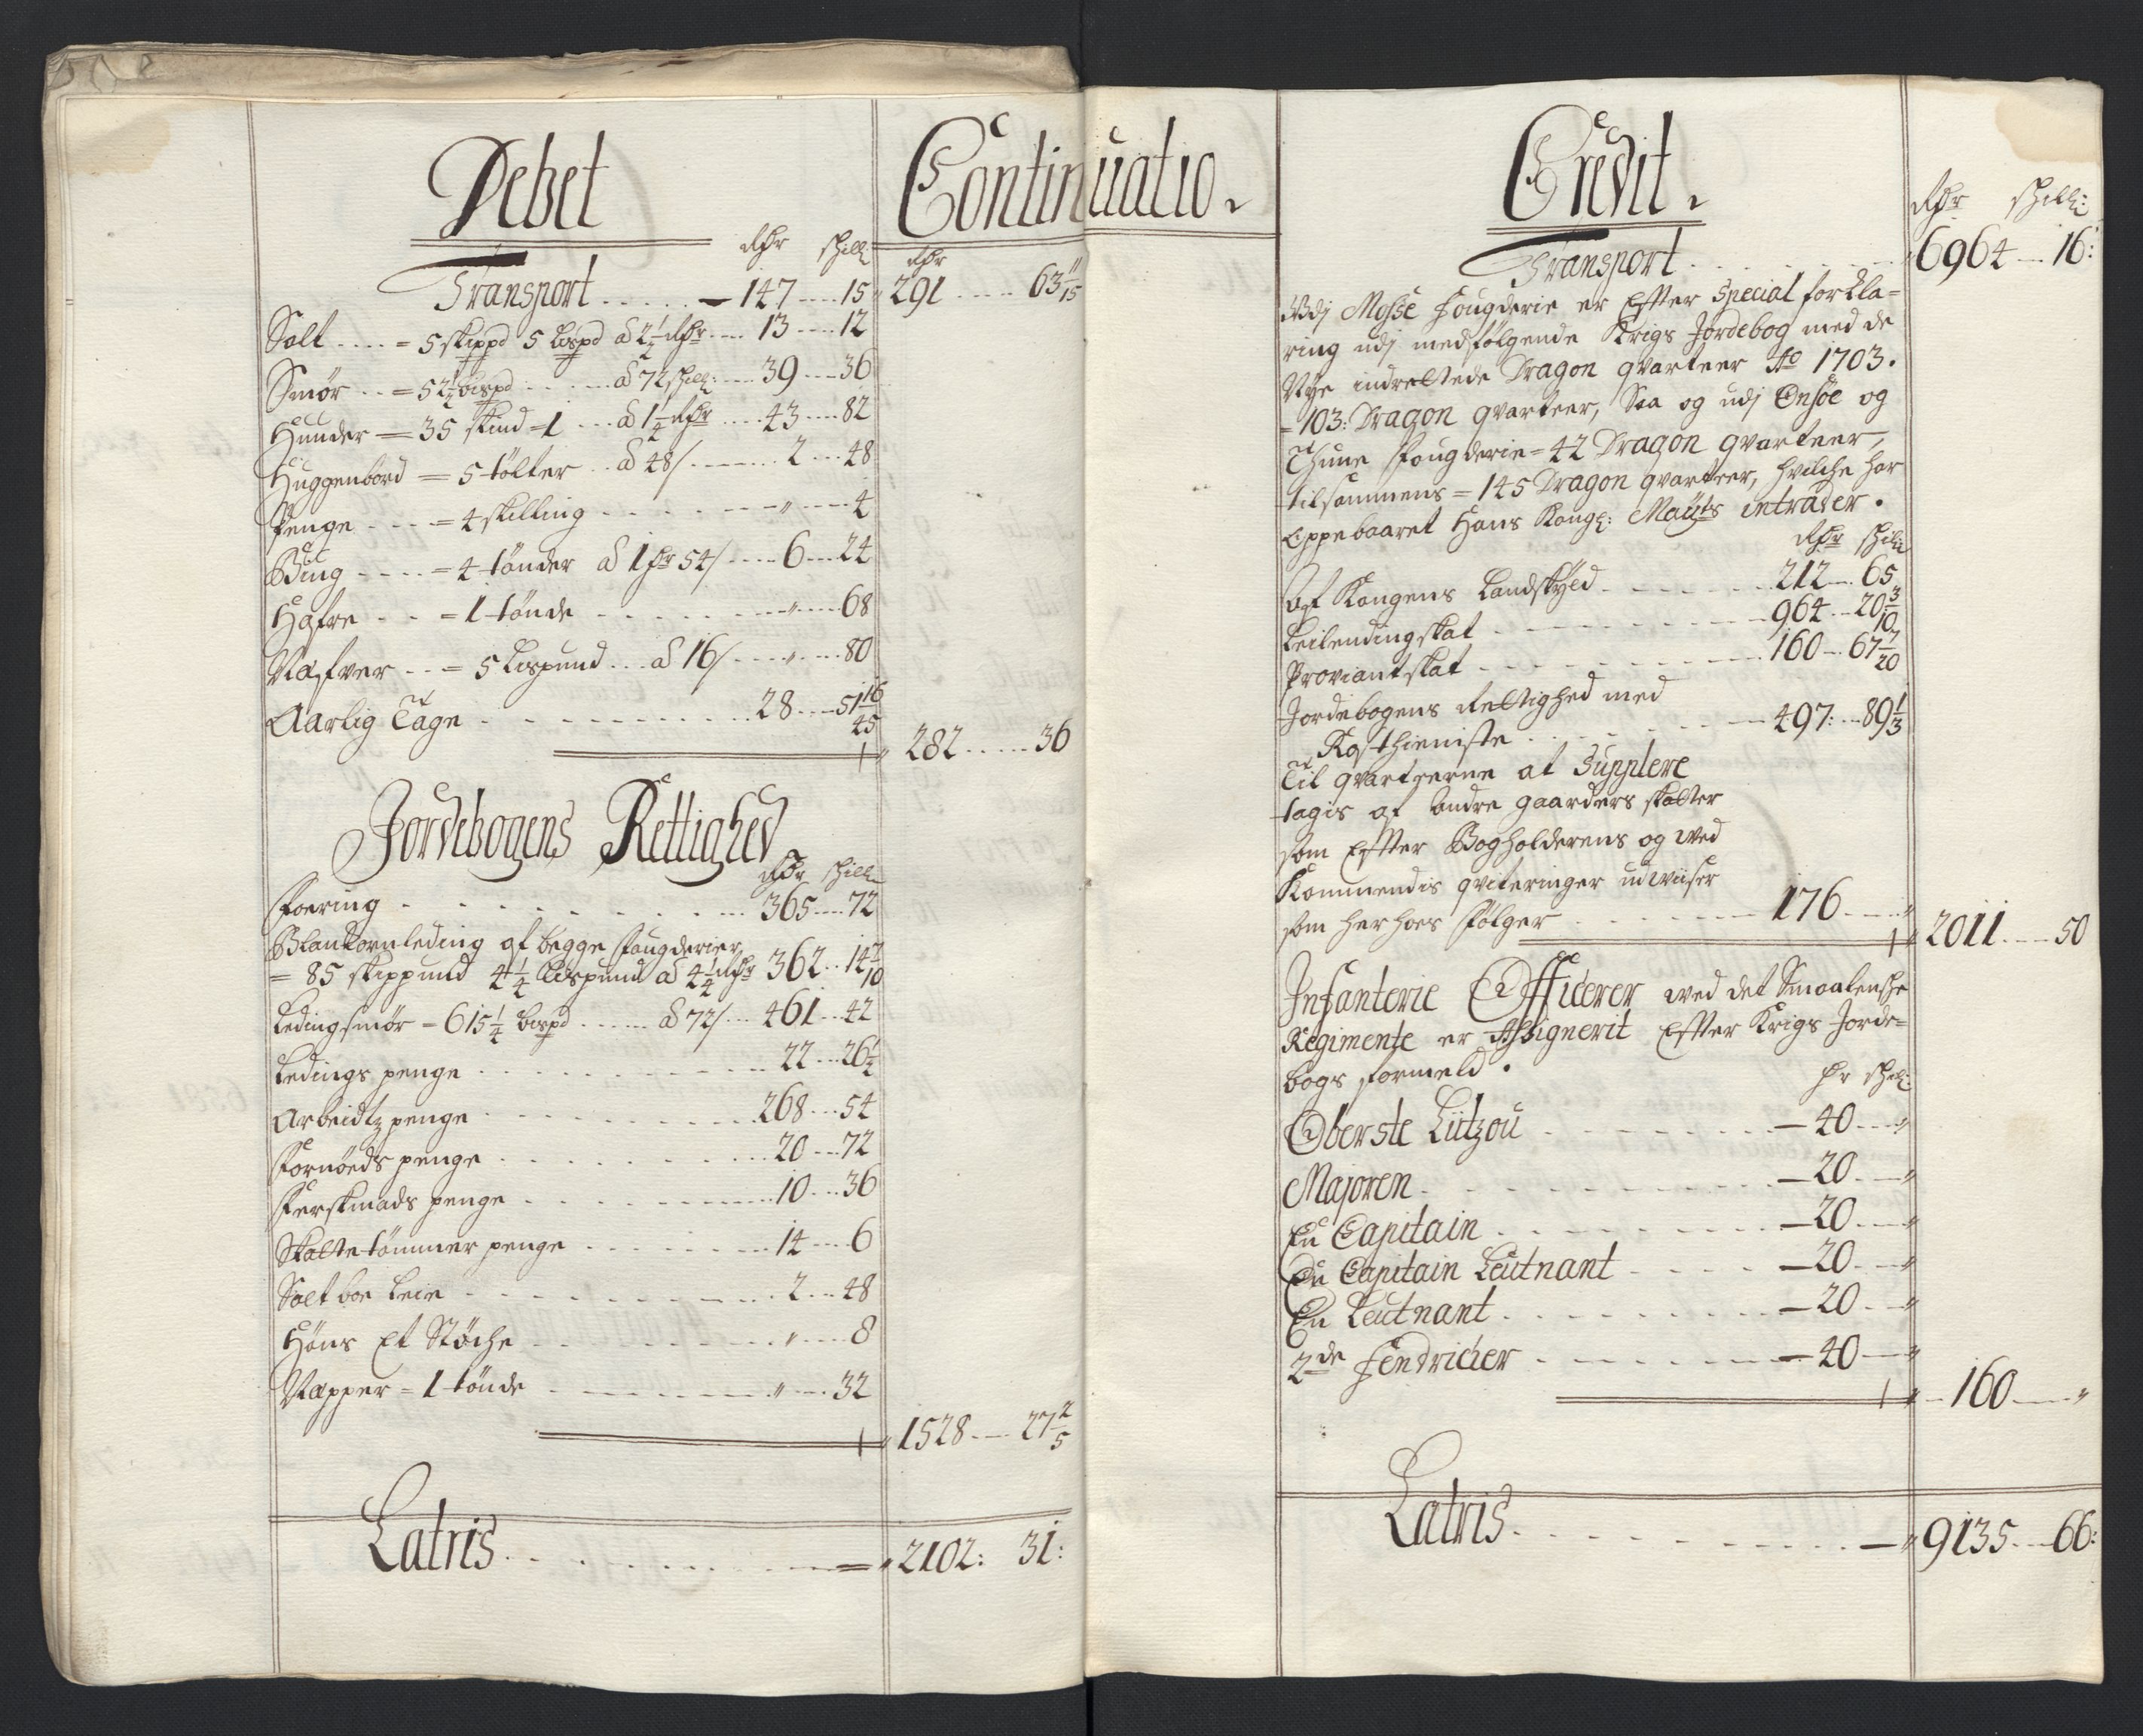 Debet Continuatio.
Rdr Schill: Rdr
Transport ..... 147 .... 15 291 ..... 63 11/15
Salt .... = 5 skippd 5 Lispd à 2 1/2 Rdr .... 13 .... 12
Smør .. = 52 1/2 Bispd ..... à 72 Schill: .... 39 .... 36
Hunder = 35 skind = 1 ... à 1 1/4 Rdr .... 43 .... 82
Huggenbord = 5 tølter .. à 48/ ....... 2 .... 48
Penge .... = 4 skilling ....... " .... 4
Biug .... = 4 tønder à 1 dr 54/ .... 6 .... 24
Hafre .. = 1 tønde ....... " .... 68
Næfver ... = 5 Lispund ... à 16/ .... " .... 80
Aarlig Tage ......... 28 .... 51 16/45
282 ..... 36
Jordebogens Rettighed
Rdr Schill:
Foering ......... 365 .... 72
Blankornleding af begge fougderier
= 85 skippund 4 1/4 Lispund à 4 1/4 Rdr 362 .. 14 7/10
Ledingsmør = 615 1/4 Bispd ...... à 72/ ... 461 .. 42
Ledings penge ......... 22 ... 26 1/2
Arbeidtz penge ......... 268 ... 54
Fornøeds penge ......... 20 ... 72
Ferskmads penge ......... 10 ... 36
Skattetømmer penge ....... 14 ... 6
Salt boe Leie ......... 2 ... 48
Høns Et Støche ....... " .... 8
Næpper = 1 tønde ....... " .... 32
1528 .... 27 2/5
Latris ......... 2102: 31:
Credit.
Rdr Schill:
Transport ....... 6964 .... 16:
Udj Mosse Fougderie er Efter Special forkla=
ring udj medfølgende Krigs Jordebog med de
Nye indrettede Dragon qvarteer Ao 1703.
= 103: Dragon qvarteer, Saa og udj Onsøe og
Thune fougderie = 42 Dragon qvarteer,
tilsammens = 145 Dragon qvarteer, hvilche har
Oppebaaret Hans Kongl: Mayts intrader.
Rdr Schill:
Af Kongens Landskyld ....... 212 .... 65
Leilendingskat ......... 964 ... 20 3/10
Proviantskat ......... 160 ... 67 7/20
Jordebogens Rettighed med
Rosthieniste ....... 497: ... 89 1/3
Til qvarteerne at Supplere
tagis af andre gaarders skatter
som Efter Bogholderens og wed
Kommendis qviteringer udwiiser
som herhoes følger ....... 176 .... " 2011 .... 50
Infanterie Officerer wed det Smaalensche
Regimente er Assignerit Efter Krigs Jorde=
bogs formeld.
dr Schil:
Oberste Lützou ....... 40 ... "
Majoren ......... 20 ... "
En Capitain ....... 20 ... "
En Capitain Leutnant .... 20 ... "
En Leutnant ......... 20 ... "
2de Fendricher ....... 40 ... "
160 .... "
Latris ......... 9135 ... 66: